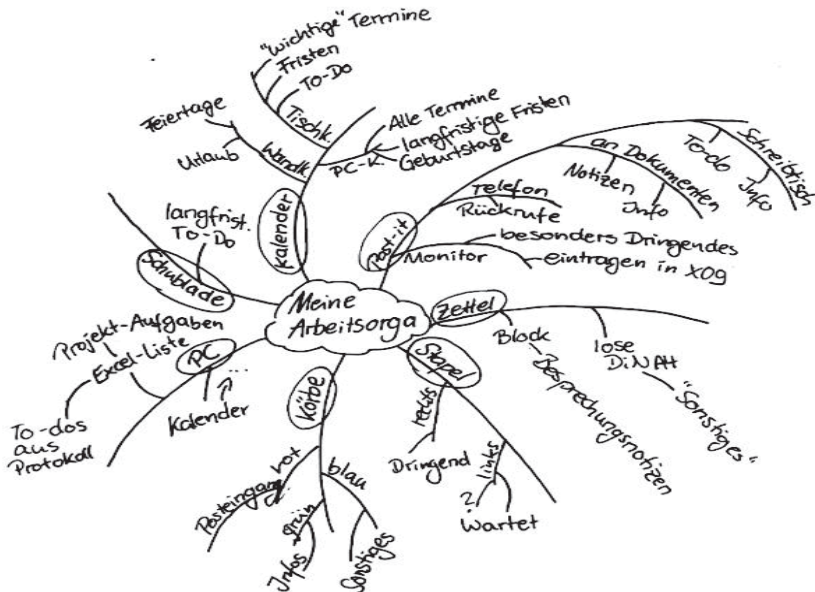 Meine
Arbeitsorga
kalender
Tischk.
"wichtige" Termine
Fristen
To-Do
Wandk.
Feiertage
Urlaub
PC-K.
Alle Termine
langfristige Fristen
Geburtstage
Post-it
Schreibtisch
To-do
Info
an Dokumenten
Notizen
Info
Telefon
Rückrufe
Monitor
besonders Dringendes
eintragen in X09
Zettel
Block
Besprechungsnotizen
lose
DiN A4
"Sonstiges"
Stapel
rechts
Dringend
links
?
Wartet
Körbe
rot
Posteingang
blau
Sonstiges
grün
Infos
PC
Kalender
...
Excel-Liste
Projekt-Aufgaben
To-dos
aus
Protokoll
Schublade
langfrist.
To-Do